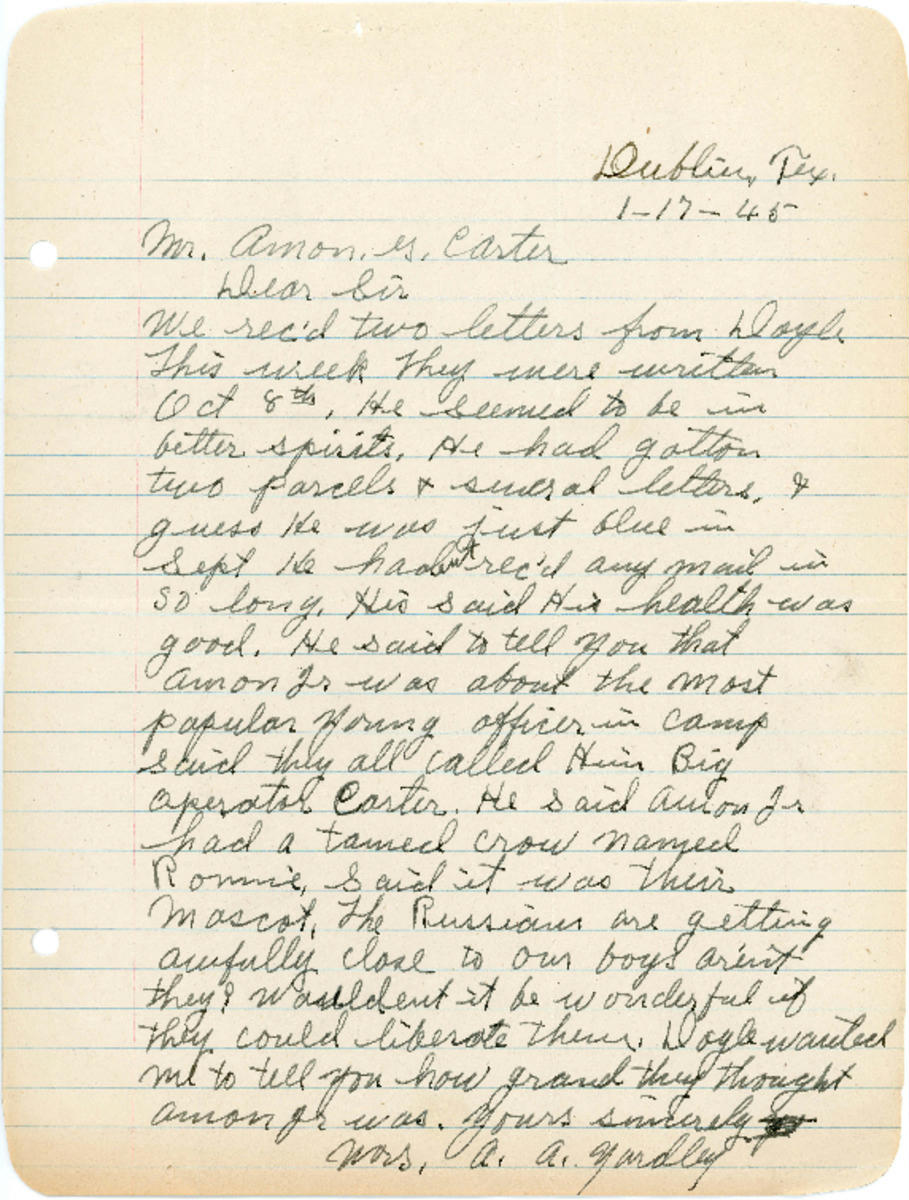 Dublin, Tex.
1-17-45
Mr. Amon. G. Carter
Dear Sir
We rec'd two letters from Doyle
This week they were written
Oct 8th, He seemed to be in
better spirits. He had gotton
two parcels & several letters, &
guess He was just blue in
Sept He hadent rec'd any mail in
so long. His said His health was
good. He said to tell you that
Amon Jr was about the most
popular young officer in camp
said they all called Him Big
operator Carter. He said Amon Jr
had a tamed crow named
Ronnie, said it was their
Mascot, The Russians are getting
awfully close to our boys arent
they? Wouldent it be wonderful if
they could liberate them. Doyle wanted
me to tell you how grand they thought
Amon Jr was. Yours sincerely
Mrs. A. A. Yardley